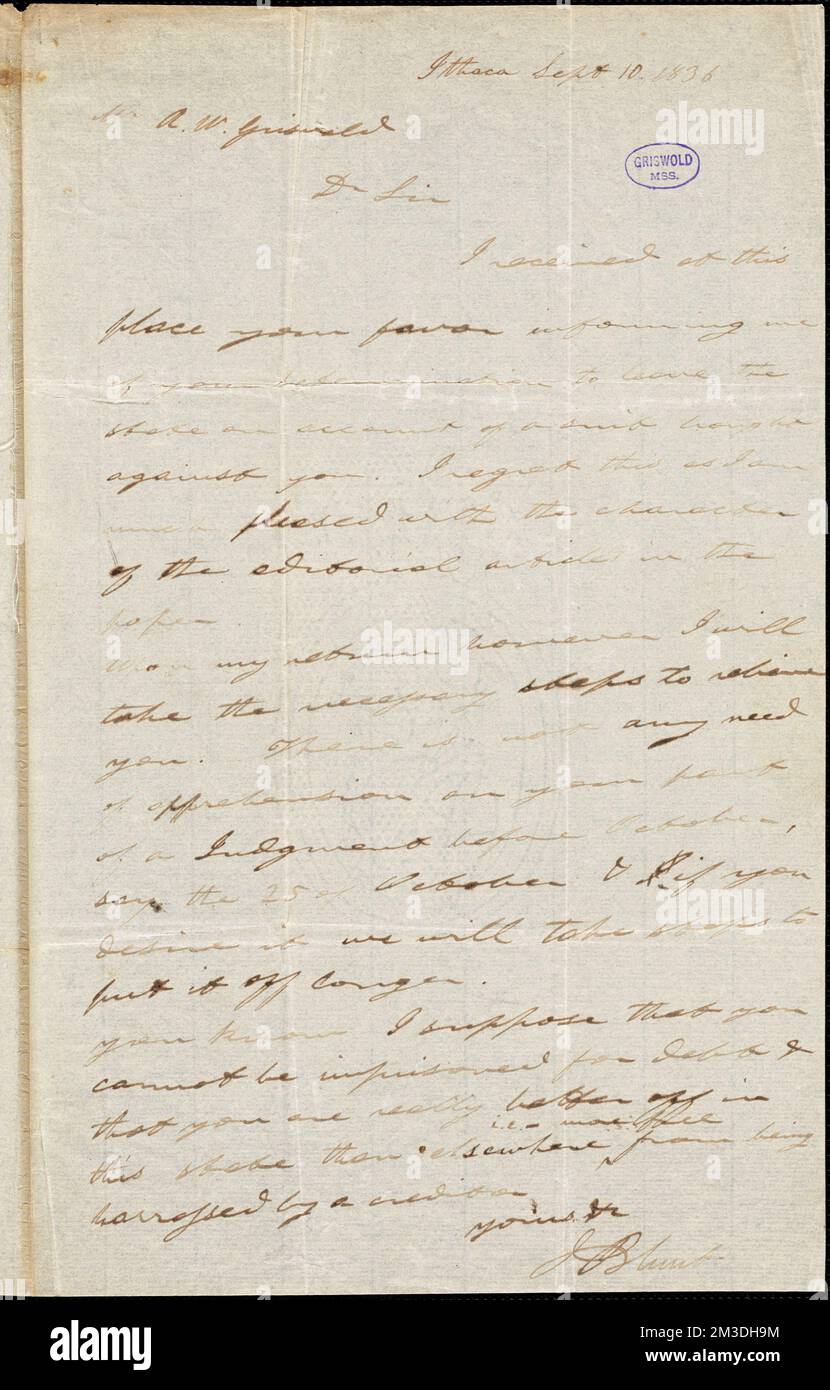 Ithaca Sept 10. 1836
Mr R. W. Griswold
GRISWOLD
MSS.
Dr Sir
I received at this
place your favor informing me
of your determination to leave the
state on account of a suit brought
against you. I regret this as I am
pleased with the character
of the editorial articles in the
paper.
Upon my return however I will
take the necessary steps to relieve
you. There is not any need
of apprehension on your part
of a Judgment before October,
say the 25 of October & if you
desire it we will take steps to
put it off longer.
you know I suppose that you
cannot be imprisoned for debt &
that you are really better off in
i.e. more free
this state than elsewhere from being
harrassed by a creditor
yours &c
J Blunt
alamy
Image ID: 2M3DH9M
www.alamy.com